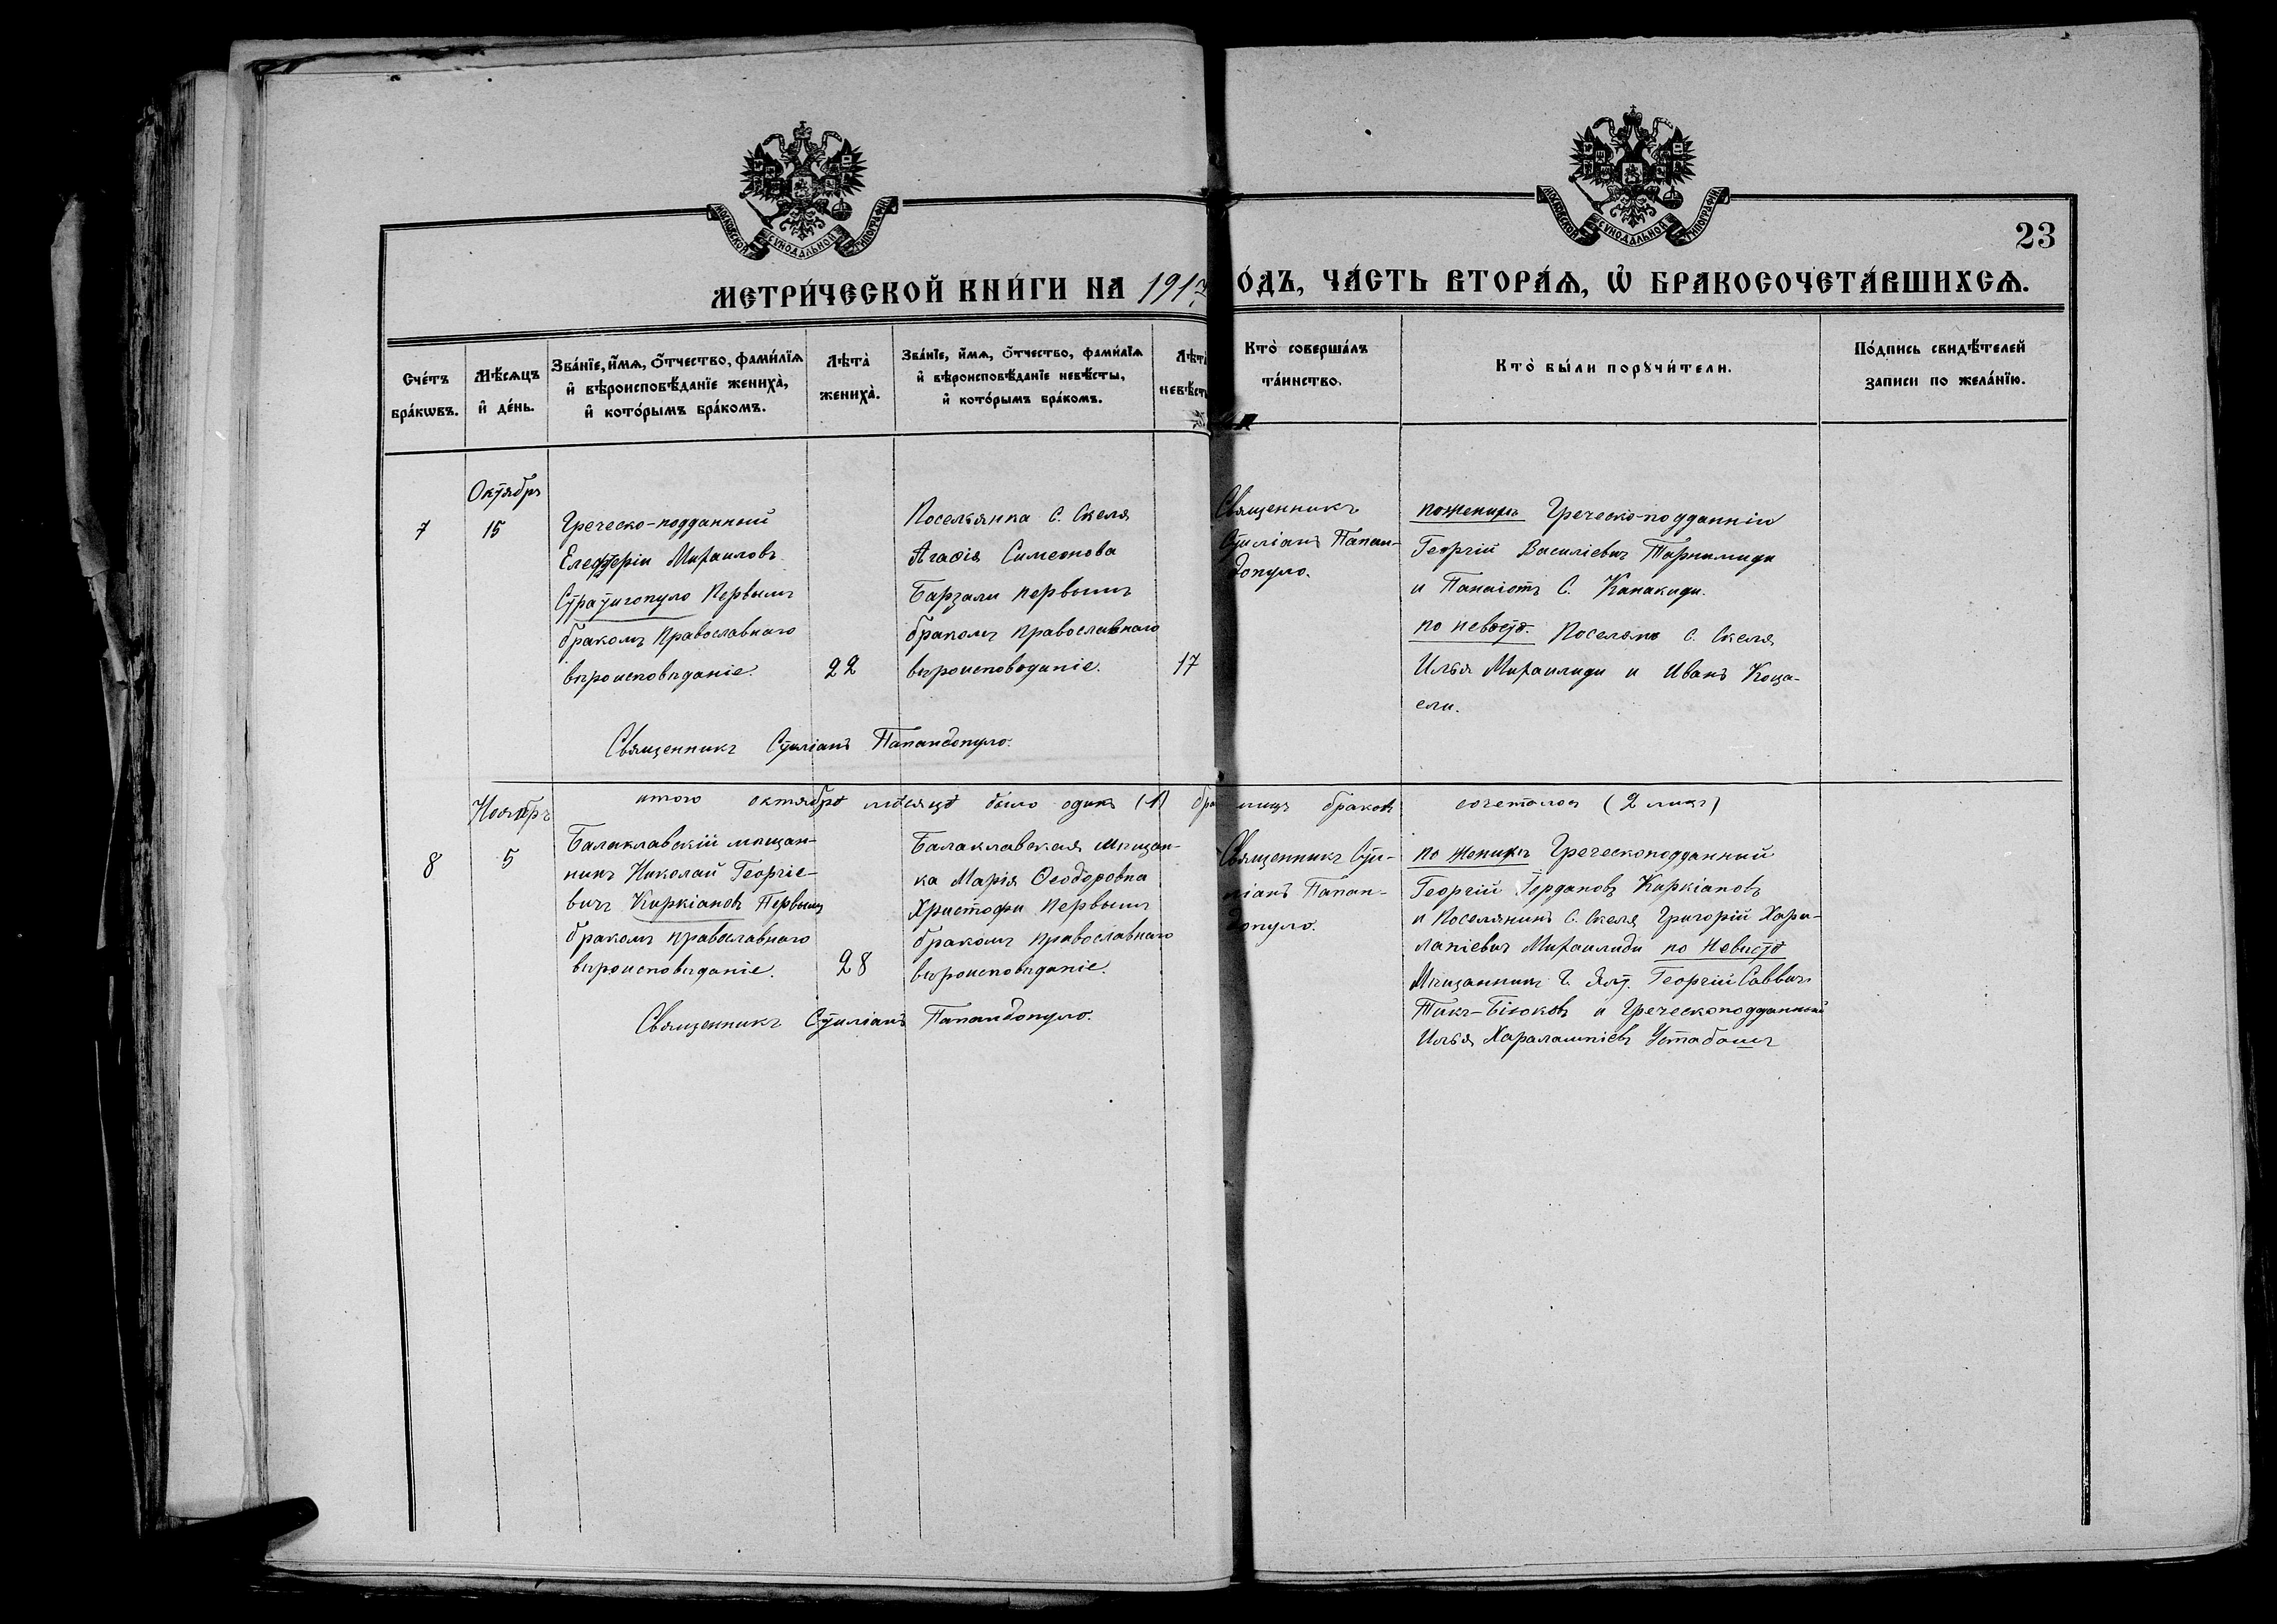 МОСКОВСКОЙ СѴНОДАЛЬНОЙ ТИПОГРАФІИ
МОСКОВСКОЙ СѴНОДАЛЬНОЙ ТИПОГРАФІИ
23
МЕТРИ́ЧЕСКОЙ КНИ́ГИ НА 1917
О́ДЪ, ЧА́СТЬ ВТОРА́Ѧ, Ѿ БРАКОСОЧЕТА́ВШИХСѦ.
Сче́тъ бра́кѡвъ.
Мѣ́сѧцъ и҆ де́нь.
Зва́нїе, и҆́мѧ, ѻ҆́тчество, фами́лїѧ
и҆ вѣроисповѣ́данїе жениха̀,
и҆ кото́рымъ бра́комъ.
Лѣта̀ жениха̀.
Зва́нїе, и҆́мѧ, ѻ҆́тчество, фами́лїѧ
и҆ вѣроисповѣ́данїе невѣ́сты,
и҆ кото́рымъ бра́комъ.
Лѣта
невѣ́ст
Кто̀ соверша́лъ
та́инство.
Кто̀ бы́ли порꙋчи́тели.
По́дпись свидѣ́телей
записи по жела́нїю.
Октябрь
7
15
Греческо-подданный
Елефтерій Михаиловъ
Стратигопуло Первымъ
бракомъ Православнаго
вѣроисповѣданіе.
22
Поселянка с. Скеля
Агафія Симеонова
Барзали первымъ
бракомъ православнаго
вѣроисповѣданіе.
17
Священникъ
Стиліанъ Папан-
допуло.
по женихѣ Греческо-подданніи
Георгій Василіевичъ
и Панаіотъ С. Канакиди.
по невѣстѣ. Поселяне с. Скеля
Илья Михаилиди и Иванъ Коца-
ели.
Священникъ Стиліанъ Папандопуло.
итого октябрѣ мѣсяцѣ было одинъ (1) бра
лицъ браковъ сочеталось (2 лицъ)
Ноябрь
8
5
Балаклавскій мѣщан-
нинъ Николай Георгіе-
вичъ Киркіановъ Первымъ
бракомъ православнаго
вѣроисповѣданіе.
28
Балаклавская мѣщан-
ка Марія Ѳеодоровна
Христофи Первымъ
бракомъ православнаго
вѣроисповѣданіе.
Священникъ Сти-
ліанъ Папан-
допуло.
по женихѣ Греческоподданный
Георгій Іордановъ Киркіановъ
и Поселянинъ с. Скеля Григорій Хара-
лапіевичъ Михаилиди по невѣстѣ
Мѣщаннинъ г. Ялт. Георгій Саввичъ
и Греческоподданный
Илья Харалампіевъ Устабашъ
Священникъ Стиліанъ Папандопуло.